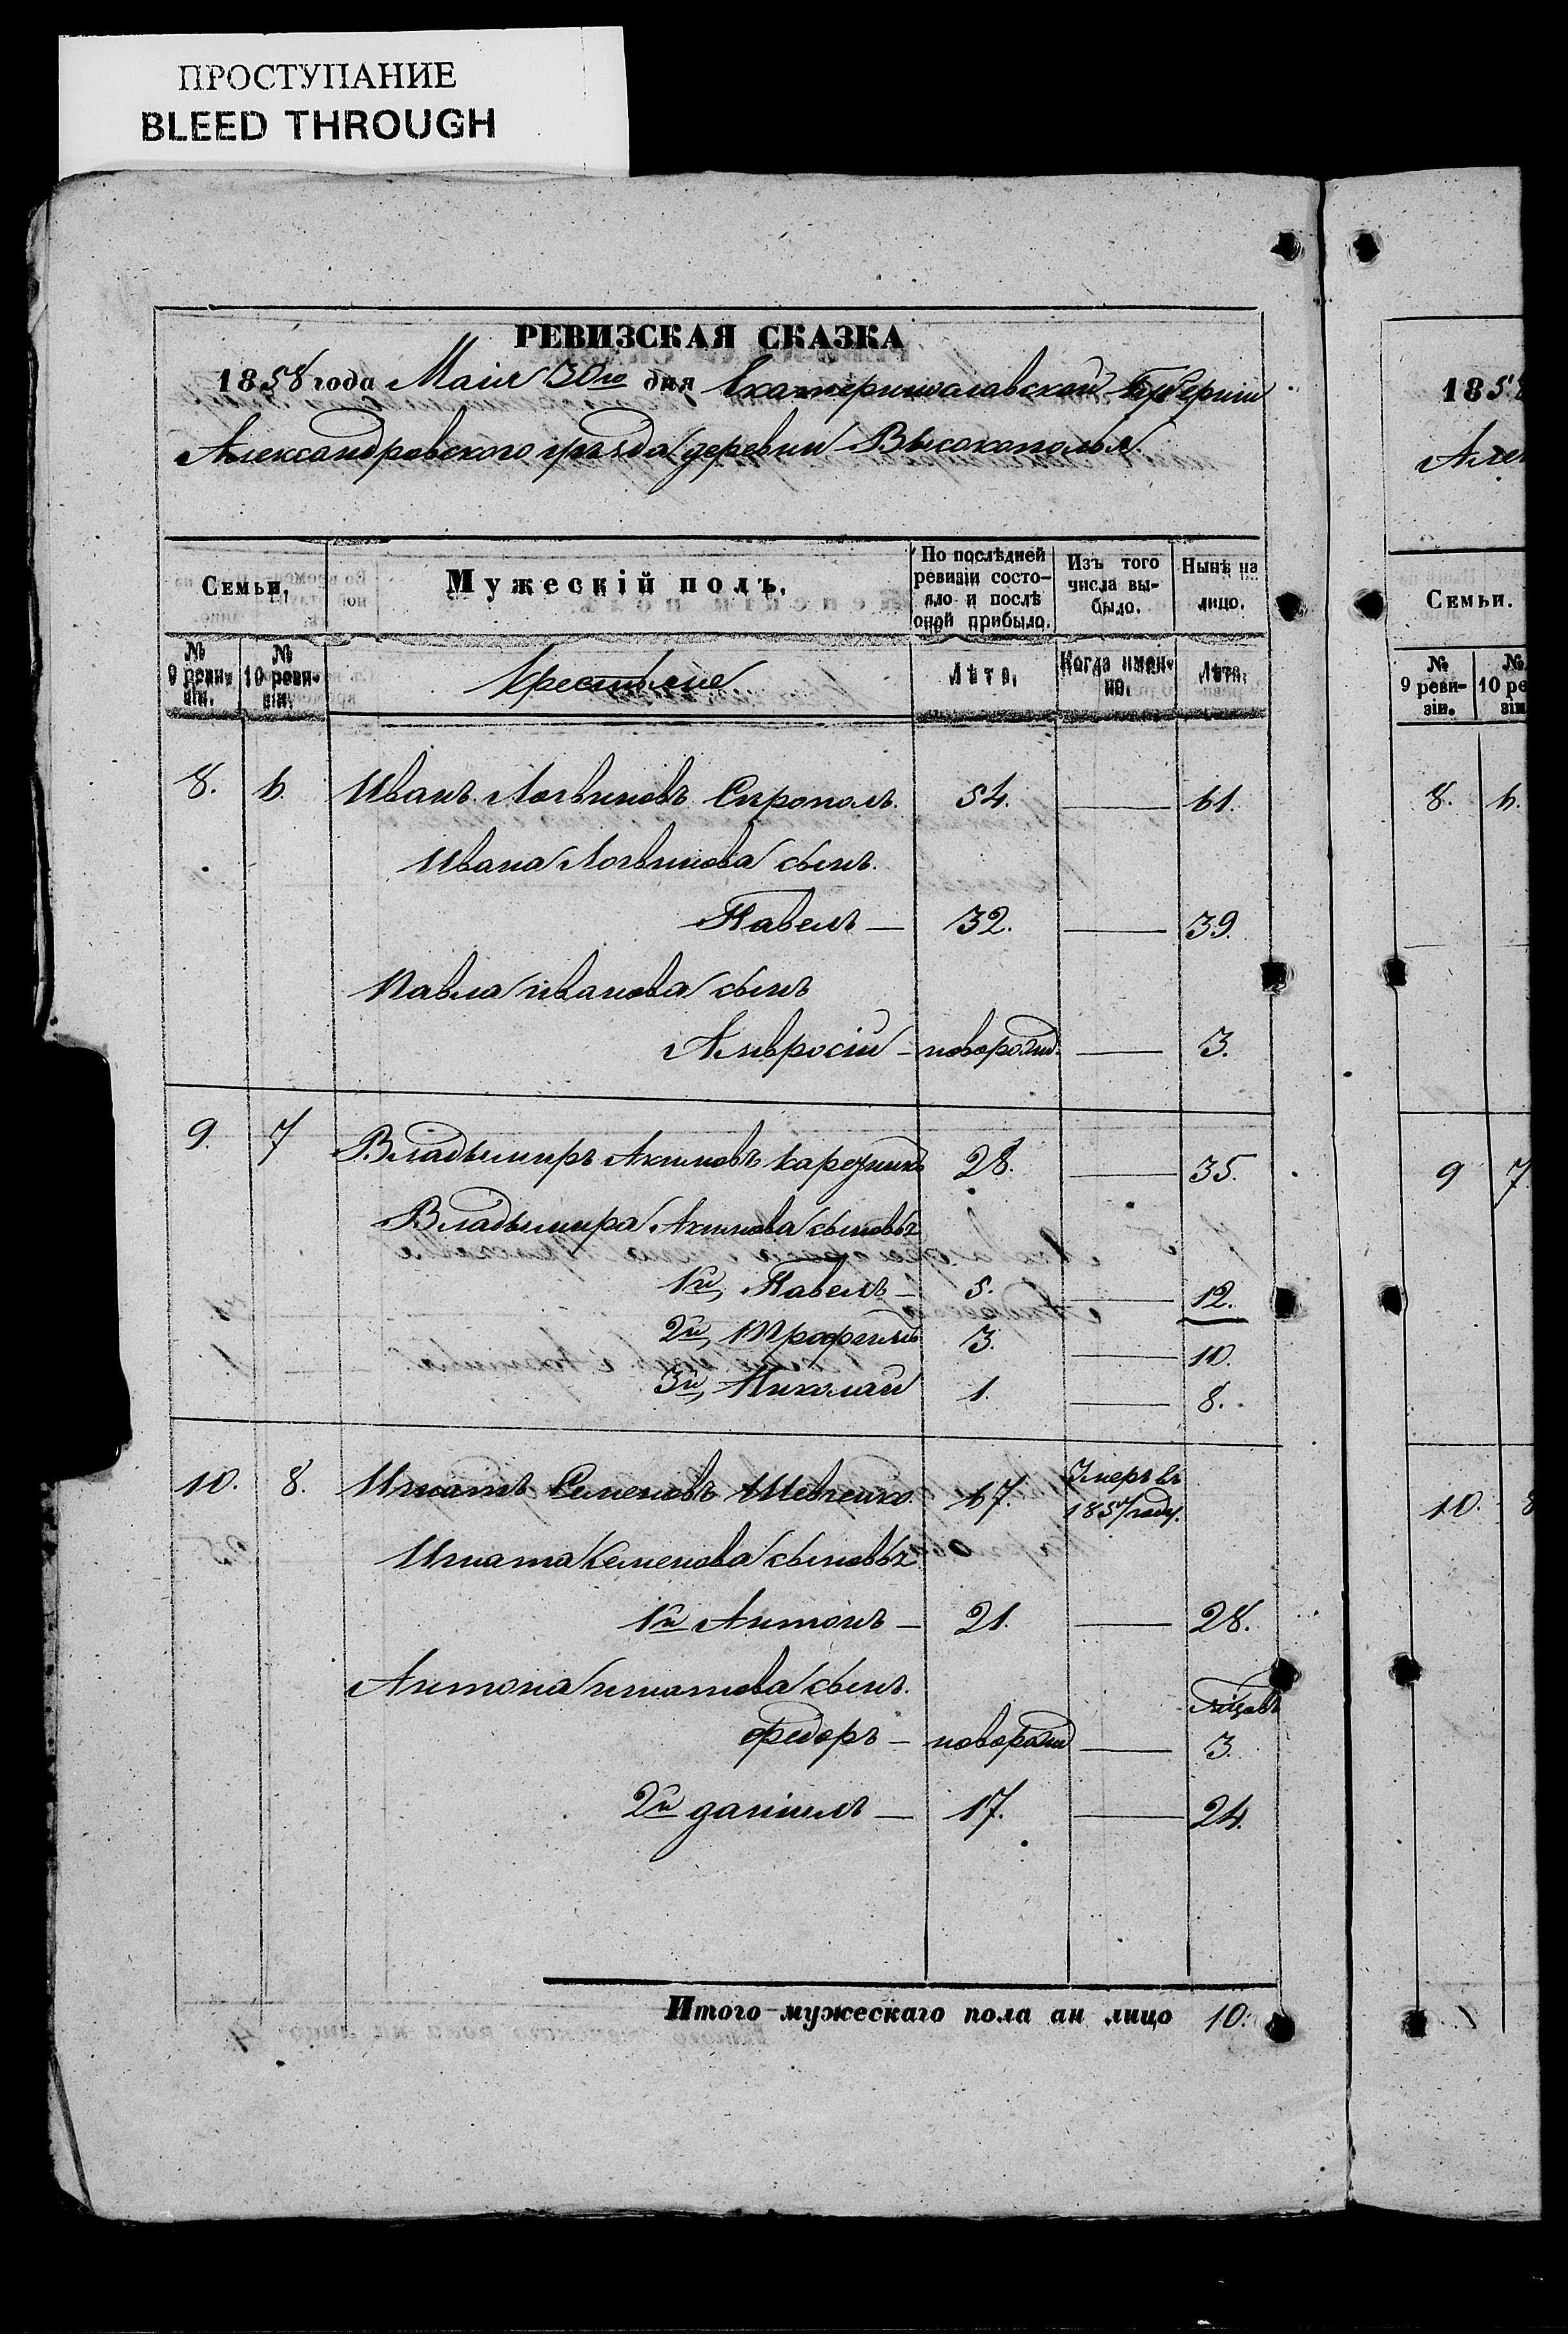 ПРОСТУПАНИЕ
BLEED THROUGH
РЕВИЗСКАЯ СКАЗКА
1858 года Маія 30го дня Екатеринославской Губерніи
Александровского уѣзда деревни Высокополья
Семьи. Мужескій полъ. По послѣдней ревизіи состояло и послѣ оной прибыло. Изъ того числа выбыло. Нынѣ на лицо.
№ 9 ревизіи. № 10 ревизіи. Крестьяне Лѣта. Когда именно. Лѣта.
8. 6. Иванъ Логвиновъ Сирополъ. 54. — 61.
Ивана Логвинова сынъ.
Павелъ — 32. — 39.
Павла иванова сынъ
Амвросій — новорожд. — 3.
9. 7 Владымиръ Акимовъ 28. — 35.
Владымира Акимова сыновья
1й, Павелъ — 5. — 12.
2й, Трофимъ 3. — 10.
3й, Николай 1. — 8.
10. 8. Игнатъ Семеновъ Шевченко. 67. Умеръ въ 1857 году.
Игната Семенова сыновья
1й Антонъ — 21. — 28.
Антона игнатова сынъ.
федоръ — новорожд — 3.
2й даніилъ — 17. — 24.
Итого мужескаго пола ан лицо 10.
1858
Алек
Семьи.
№ 9 ревизіи. № 10 ре
8. 6.
9 7.
10. 8